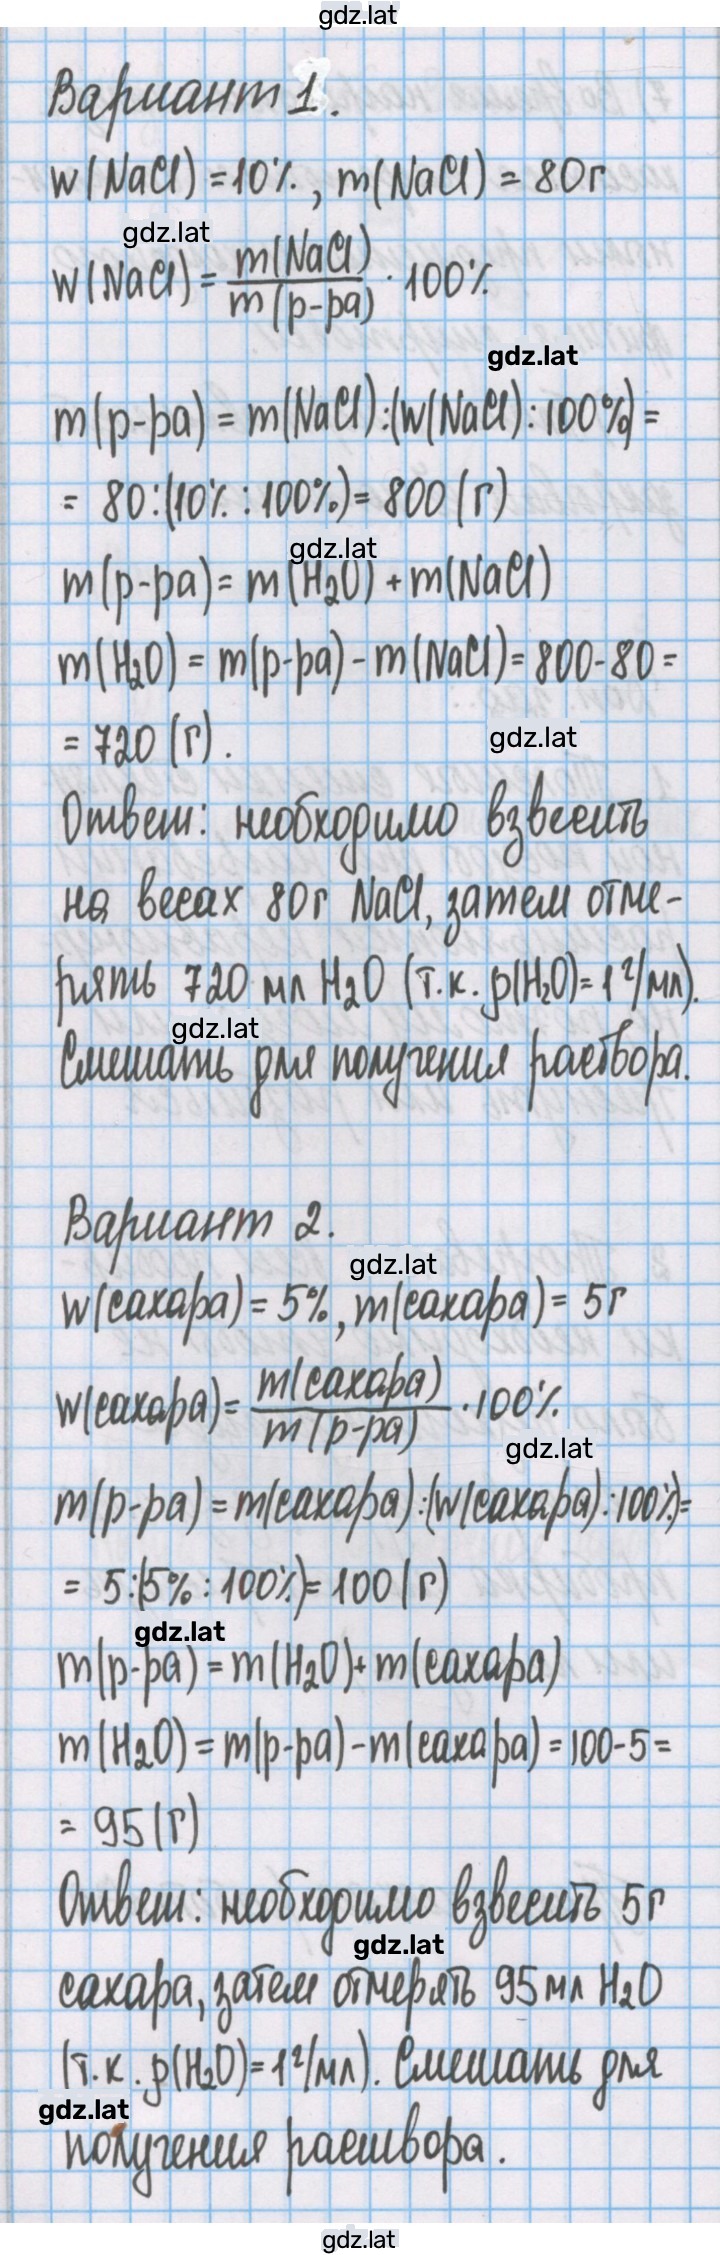 gdz.lat
Вариант 1.
w(NaCl) = 10%, m(NaCl) = 80г
gdz.lat
w(NaCl) = m(NaCl)/m(р-ра) · 100%
gdz.lat
m(р-ра) = m(NaCl):(w(NaCl):100%) =
= 80:(10% : 100%) = 800 (г)
gdz.lat
m(р-ра) = m(H2O) + m(NaCl)
m(H2O) = m(р-ра) - m(NaCl) = 800-80 =
= 720 (г).
gdz.lat
Ответ: необходимо взвесить
на весах 80г NaCl, затем отме-
рять 720 мл H2O (т.к. ρ(H2O)=1г/мл).
gdz.lat
Смешать для получения раствора.
Вариант 2.
gdz.lat
w(сахара) = 5%, m(сахара) = 5г
w(сахара) = m(сахара)/m(р-ра) · 100%
gdz.lat
m(р-ра) = m(сахара):(w(сахара):100%)=
= 5:(5% : 100%) = 100 (г)
gdz.lat
m(р-ра) = m(H2O) + m(сахара)
m(H2O) = m(р-ра) - m(сахара) = 100-5 =
= 95 (г)
Ответ: необходимо взвесить 5г
gdz.lat
сахара, затем отмерять 95мл H2O
(т.к. ρ(H2O)=1г/мл). Смешать для
gdz.lat
получения раствора.
gdz.lat